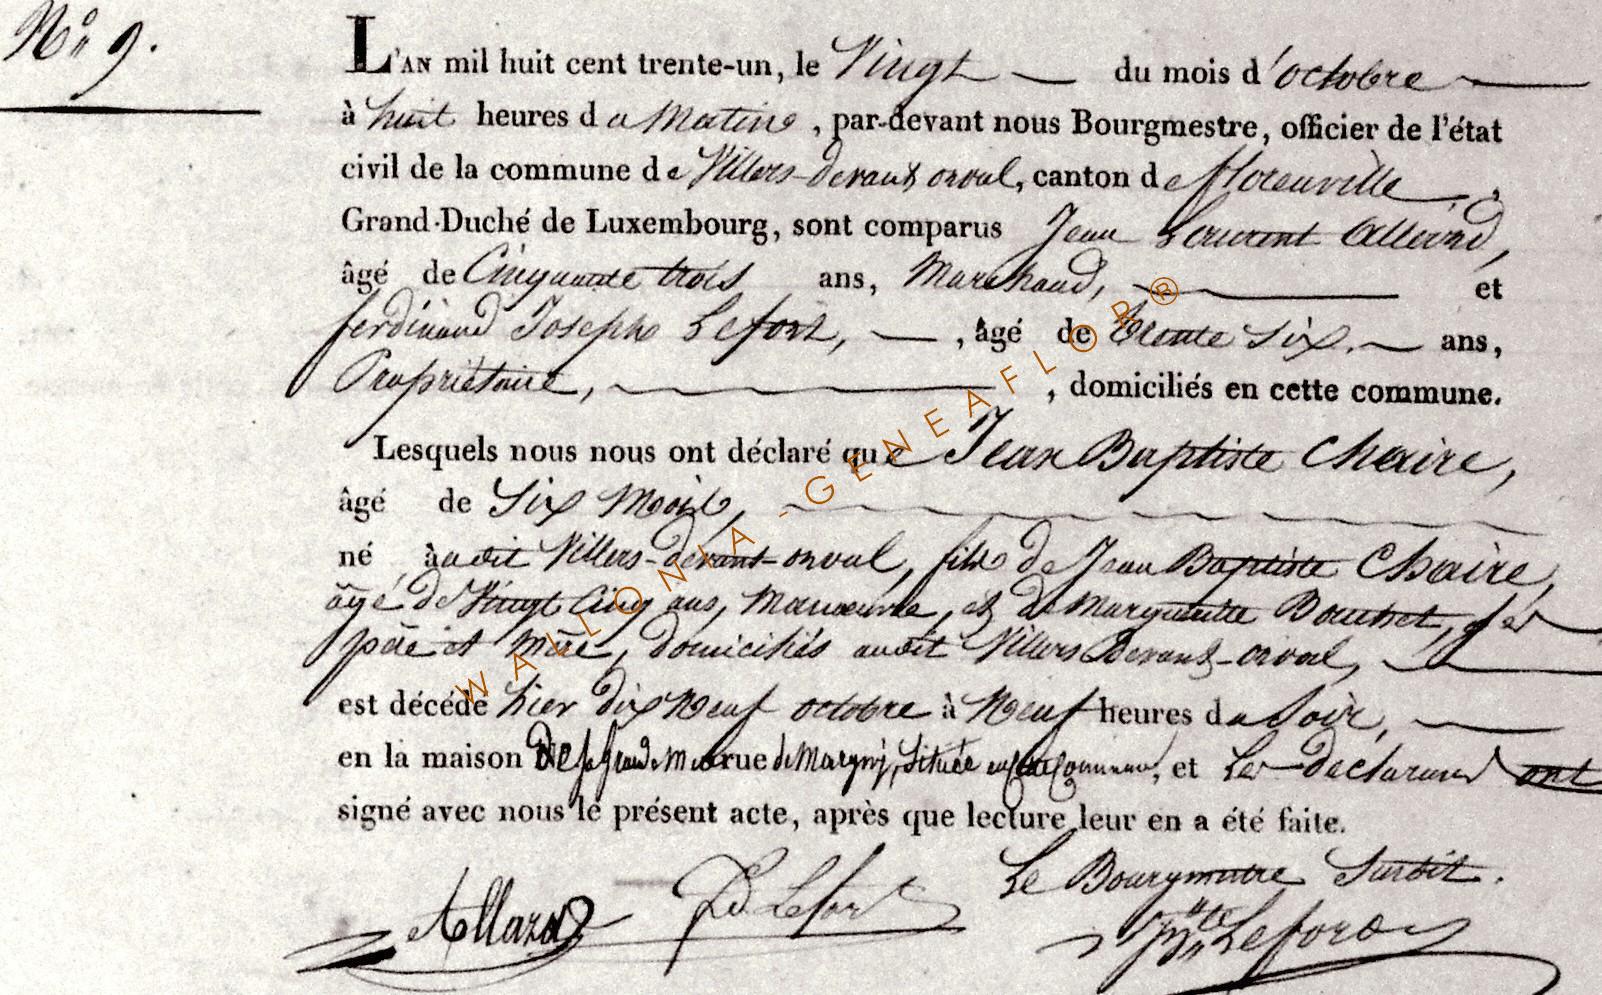 N° 9.
L'AN mil huit cent trente-un, le Vingt du mois d'octobre
à huit heures du Matin, par-devant nous Bourgmestre, officier de l'état
civil de la commune de Villers-devant orval, canton de florenville,
Grand-Duché de Luxembourg, sont comparus Jean Laurent
âgé de Cinquante trois ans, Marchand, et
ferdinand Joseph Lefort, , âgé de trente Six ans,
Propriétaire, , domiciliés en cette commune.
Lesquels nous nous ont déclaré que Jean Baptiste Chaire,
âgé de Six Mois,
né audit Villers-devant-orval, fils de Jean Baptiste Chaire,
âgé de Vingt Cinq ans, Manœuvre, et de Marguerite
père et mère, domiciliés audit Villers Devant-orval,
est décédé hier dix Neuf octobre à Neuf heures du Soir,
en la maison De Sa grande Mere rue de Margny, Située en cette Commune, et Les declarans ont
signé avec nous le présent acte, après que lecture leur en a été faite.
Le Bourgmestre Surdit.
Allard Lefort Lefort
WALLONIA-GENEAFLOR®